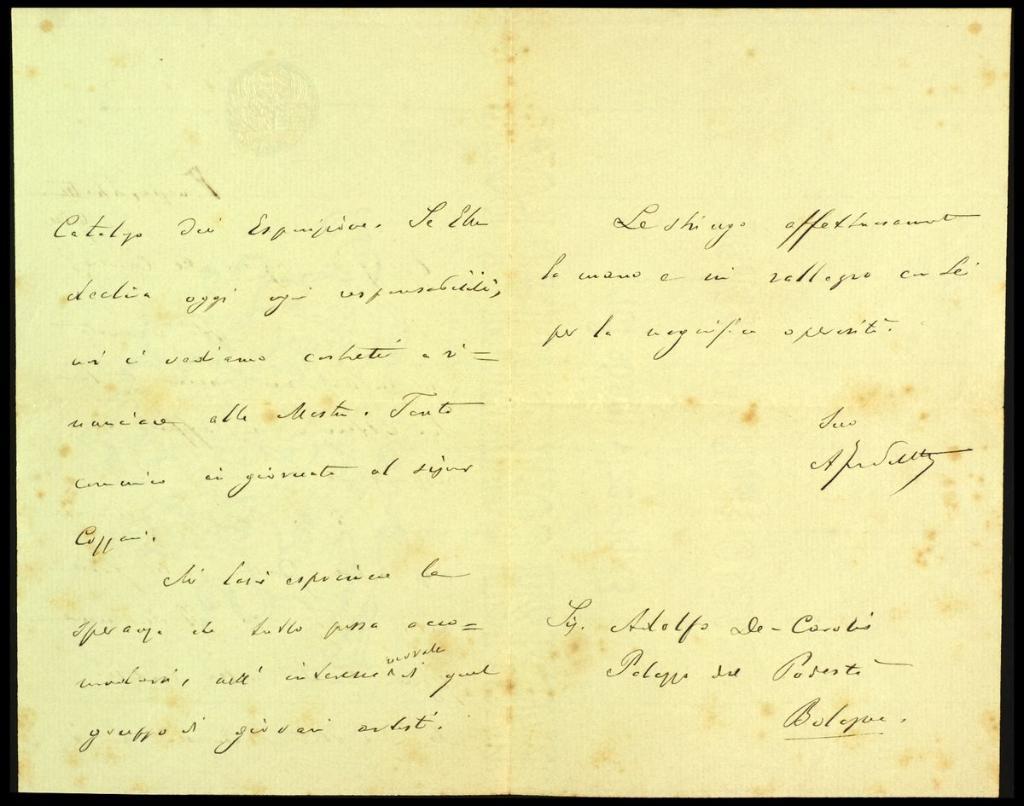 Catalogo dei Espressione. Se Ella
declina oggi ogni responsabilità,
noi ci vediamo costretti a ri=
nunciare alla Mostra. Tanto
comunico in giornata al signor
Mi lasci esprimere la
speranza che tutto possa acco=
modarsi, nell'interesse morale di quel
gruppo di giovani artisti.
Le stringo affettuosamente
la mano e mi rallegro con Lei
per la magnifica operosità.
Suo
Sig. Adolfo De-Carolis
Palazzo del Podestà
Bologna.